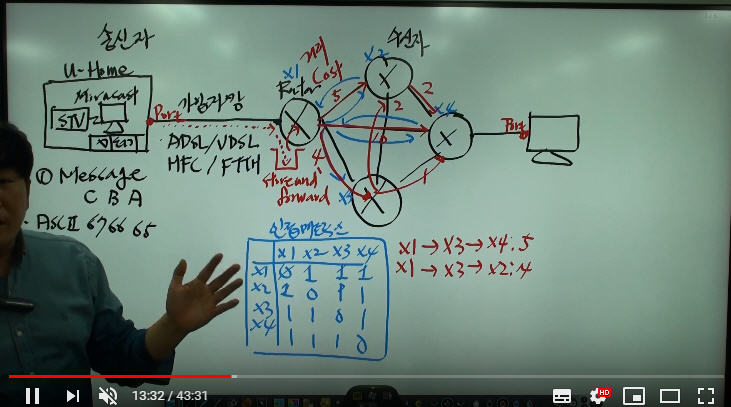 송신자
U-Home
Miracast
STV
Port
가입자망
ADSL/VDSL
HFC/FTTH
① Message
C B A
ASCII 67 66 65
X1
Router
거리
Cost
수신자
X2
5
2
2
X4
10
4
X3
1
store and
forward
Port
인접매트릭스
X1 X2 X3 X4
X1 0 1 1 1
X2 1 0 1 1
X3 1 1 0 1
X4 1 1 1 0
X1→X3→X4:5
X1→X3→X2:4
13:32 / 43:31
HD